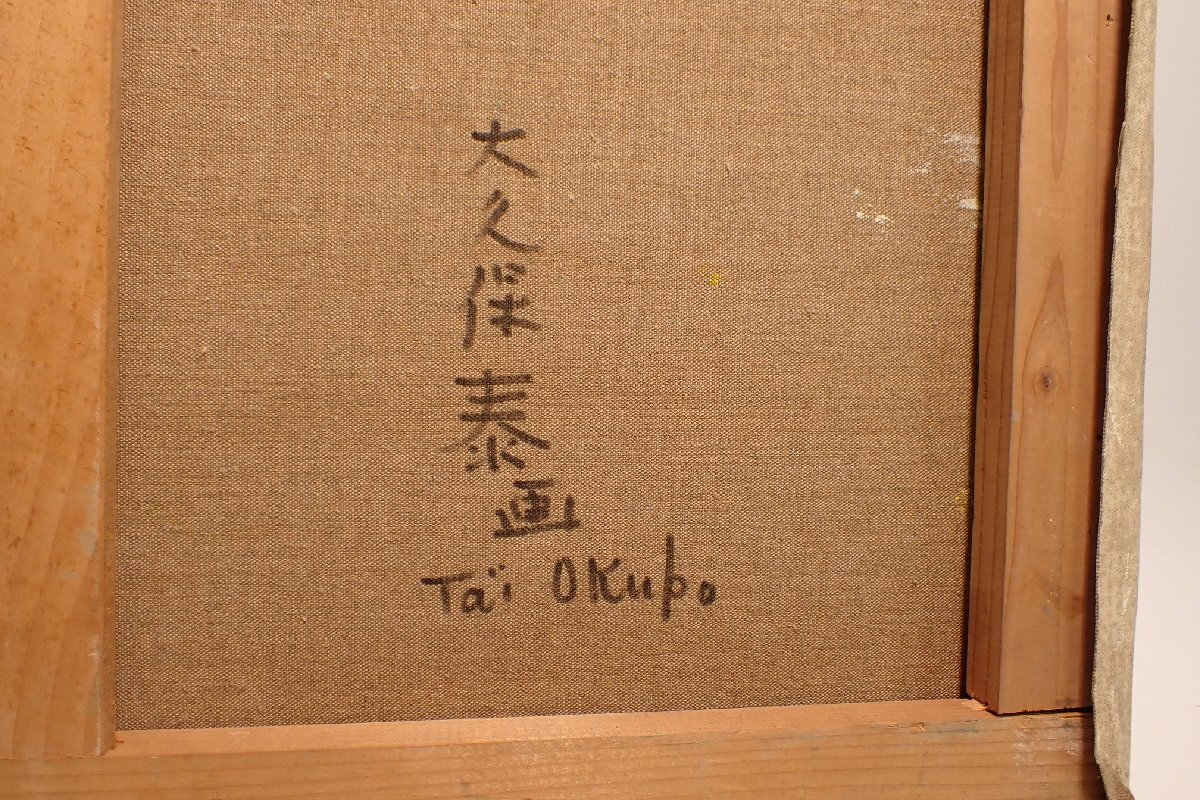 大久保泰画
Taï Okubo